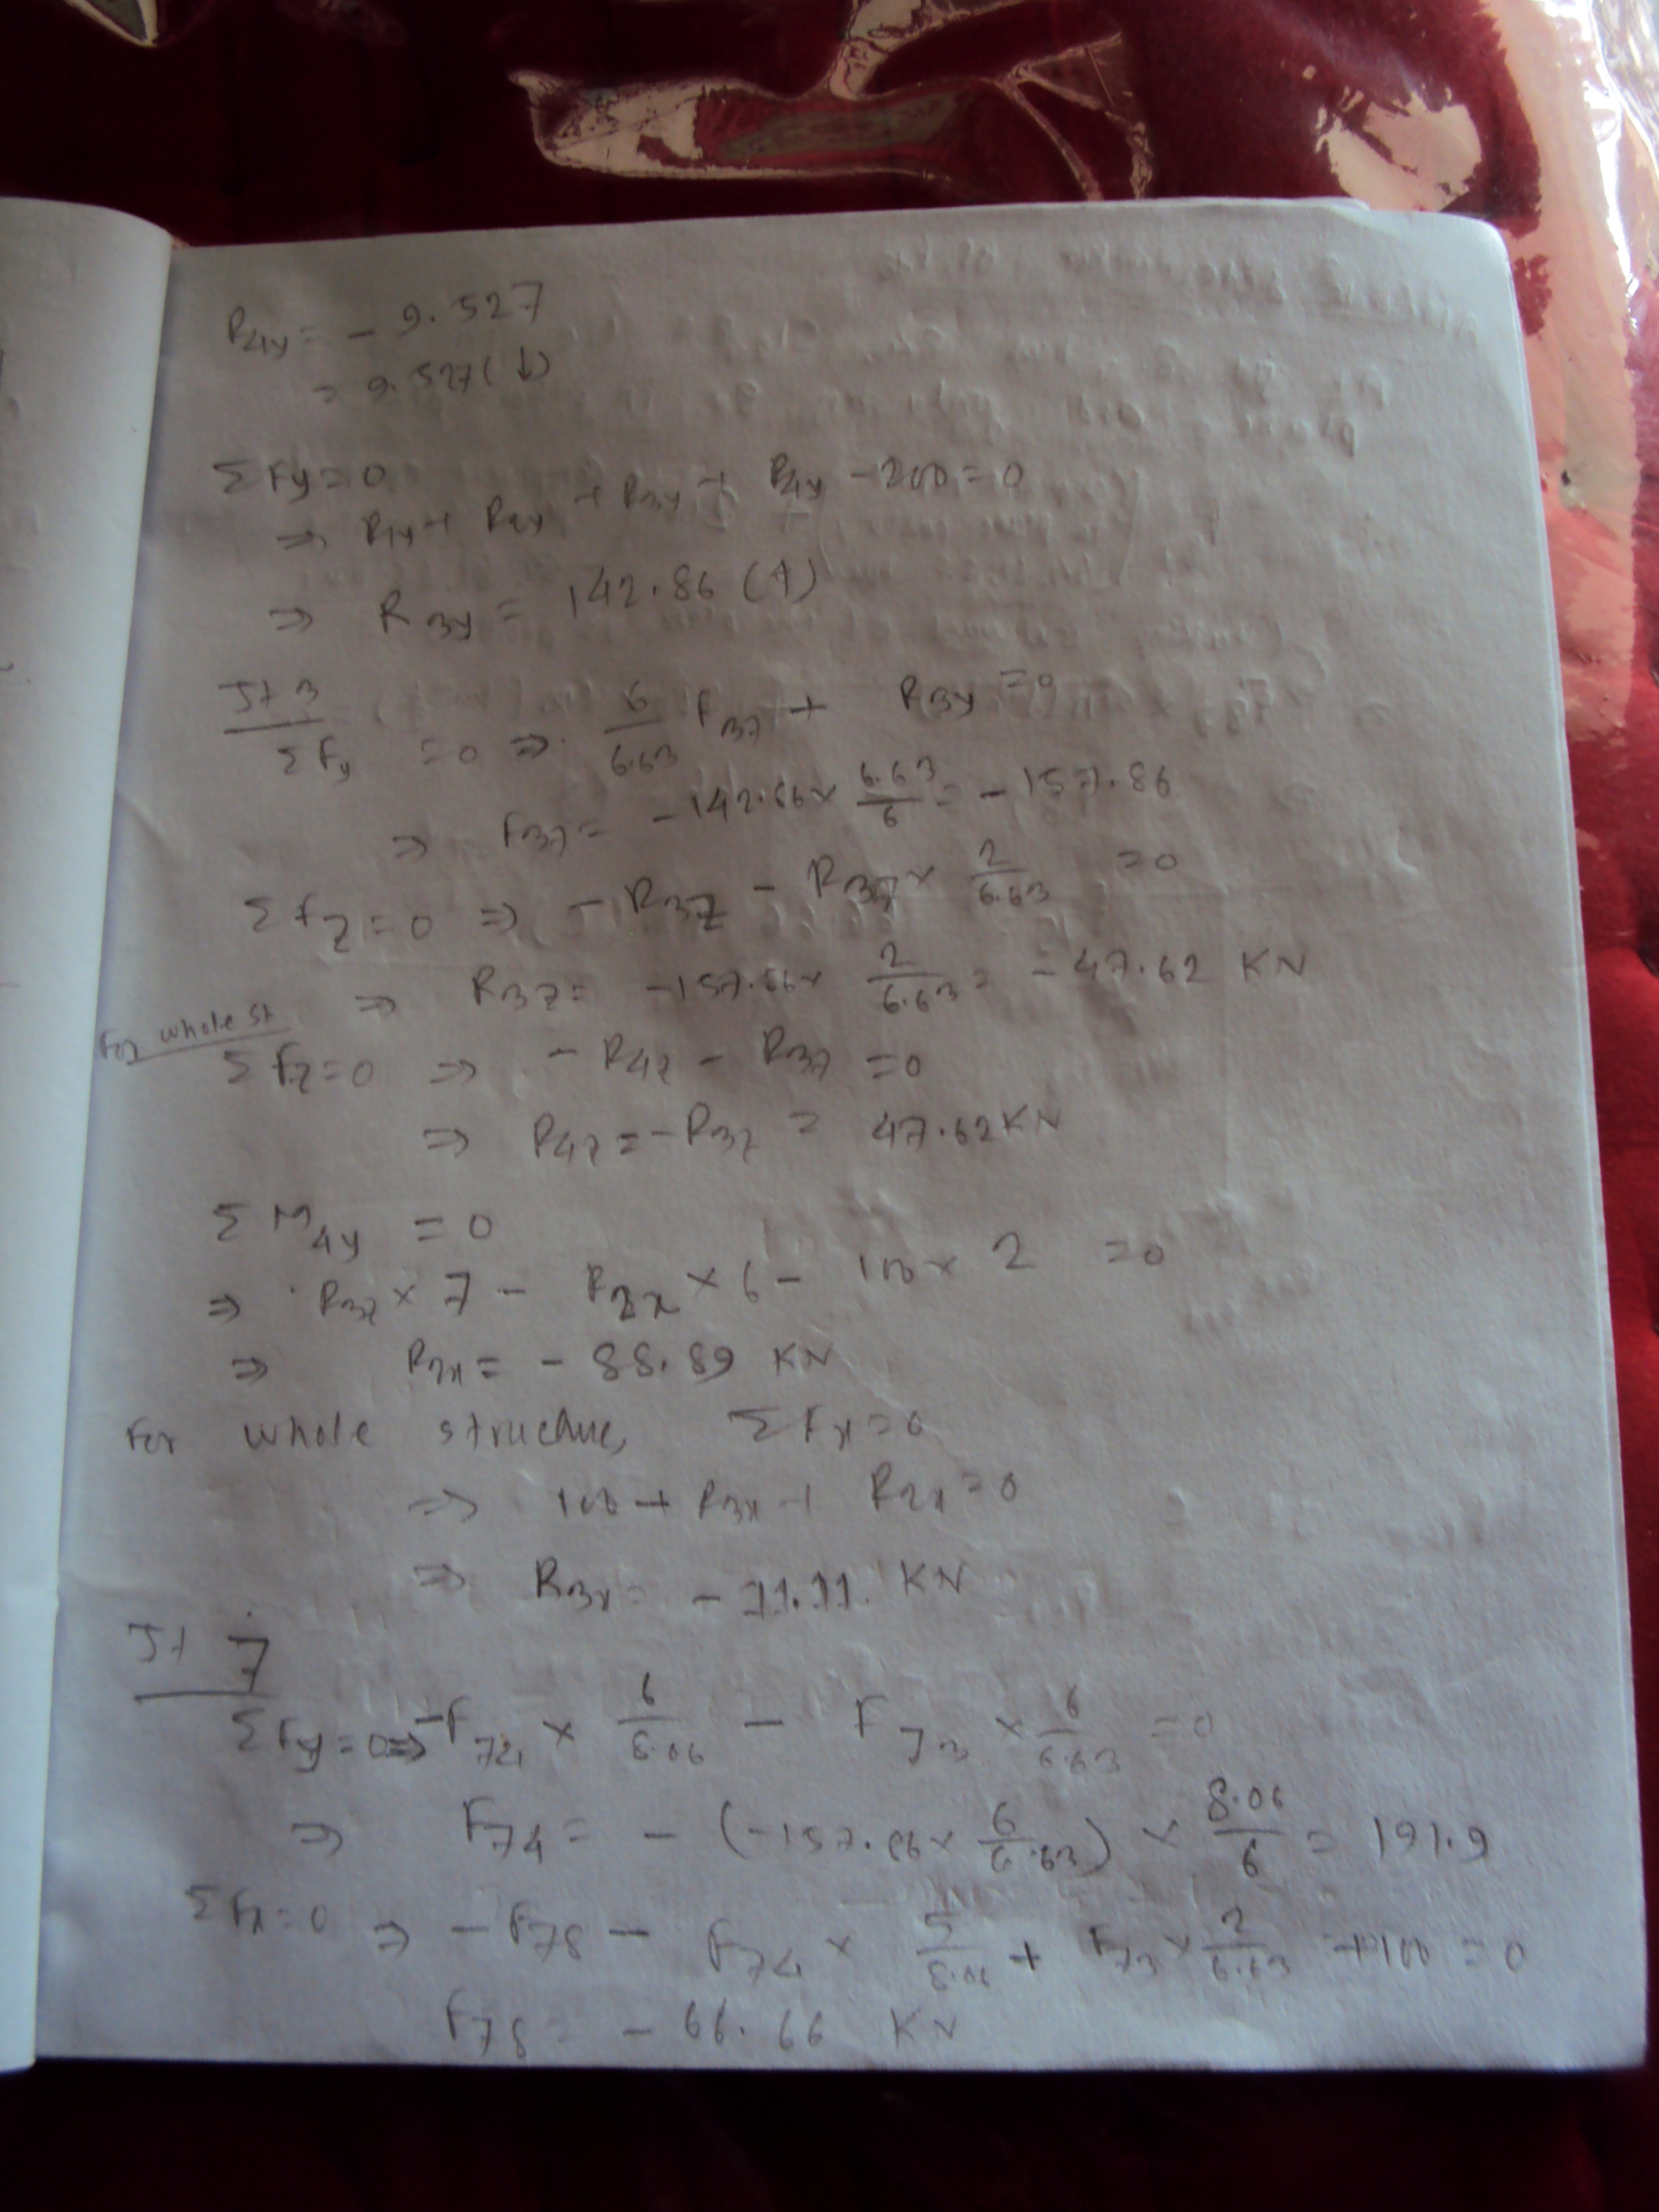 R4y = - 9.527
= 9.527 (↓)
ΣFy = 0
⇒ R1y + R2y + R3y + R4y - 200 = 0
⇒ R3y = 142.86 (↑)
Jt 3
ΣFy = 0 ⇒ 6/6.63 F37 + R3y = 0
⇒ F37 = - 142.86 × 6.63/6 = - 157.86
ΣFz = 0 ⇒ - R3z - R37 × 2/6.63 = 0
⇒ R3z = - 157.86 × 2/6.63 = - 47.62 KN
For whole st
ΣFz = 0 ⇒ - R4z - R3z = 0
⇒ R4z = - R3z = 47.62 KN
ΣM4y = 0
⇒ R3z × 7 - R2x × 6 - 100 × 2 = 0
⇒ R2x = - 88.89 KN
For whole structure, ΣFx = 0
⇒ 100 + R3x + R2x = 0
⇒ R3x = - 11.11 KN
Jt 7
ΣFy = 0 ⇒ - F74 × 6/8.06 - F73 × 6/6.63 = 0
⇒ F74 = - (-157.86 × 6/6.63) × 8.06/6 = 191.9
ΣFx = 0 ⇒ - F78 - F74 × 5/8.06 + F73 × 2/6.63 + 100 = 0
F78 = - 66.66 KN